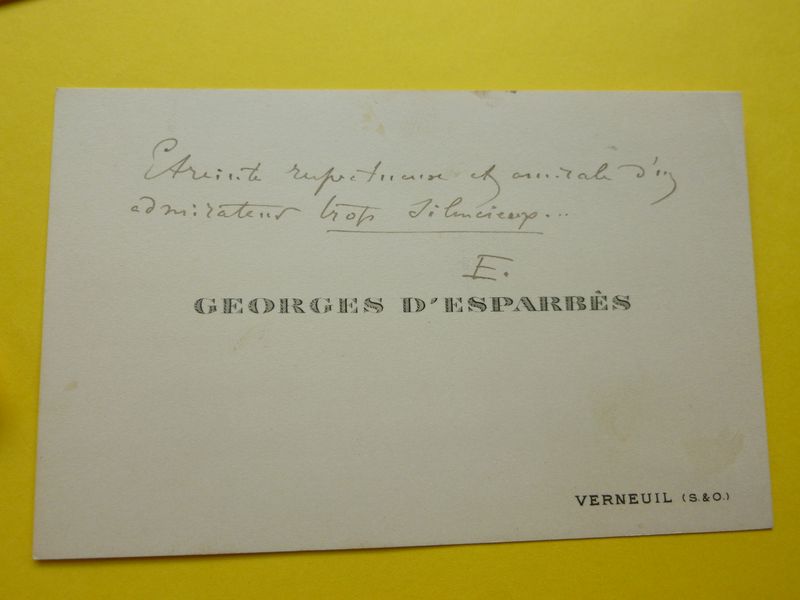 Etreinte respectueuse et amicale d'un
admirateur trop silencieux...
E.
GEORGES D'ESPARBÈS
VERNEUIL (S.&O.)